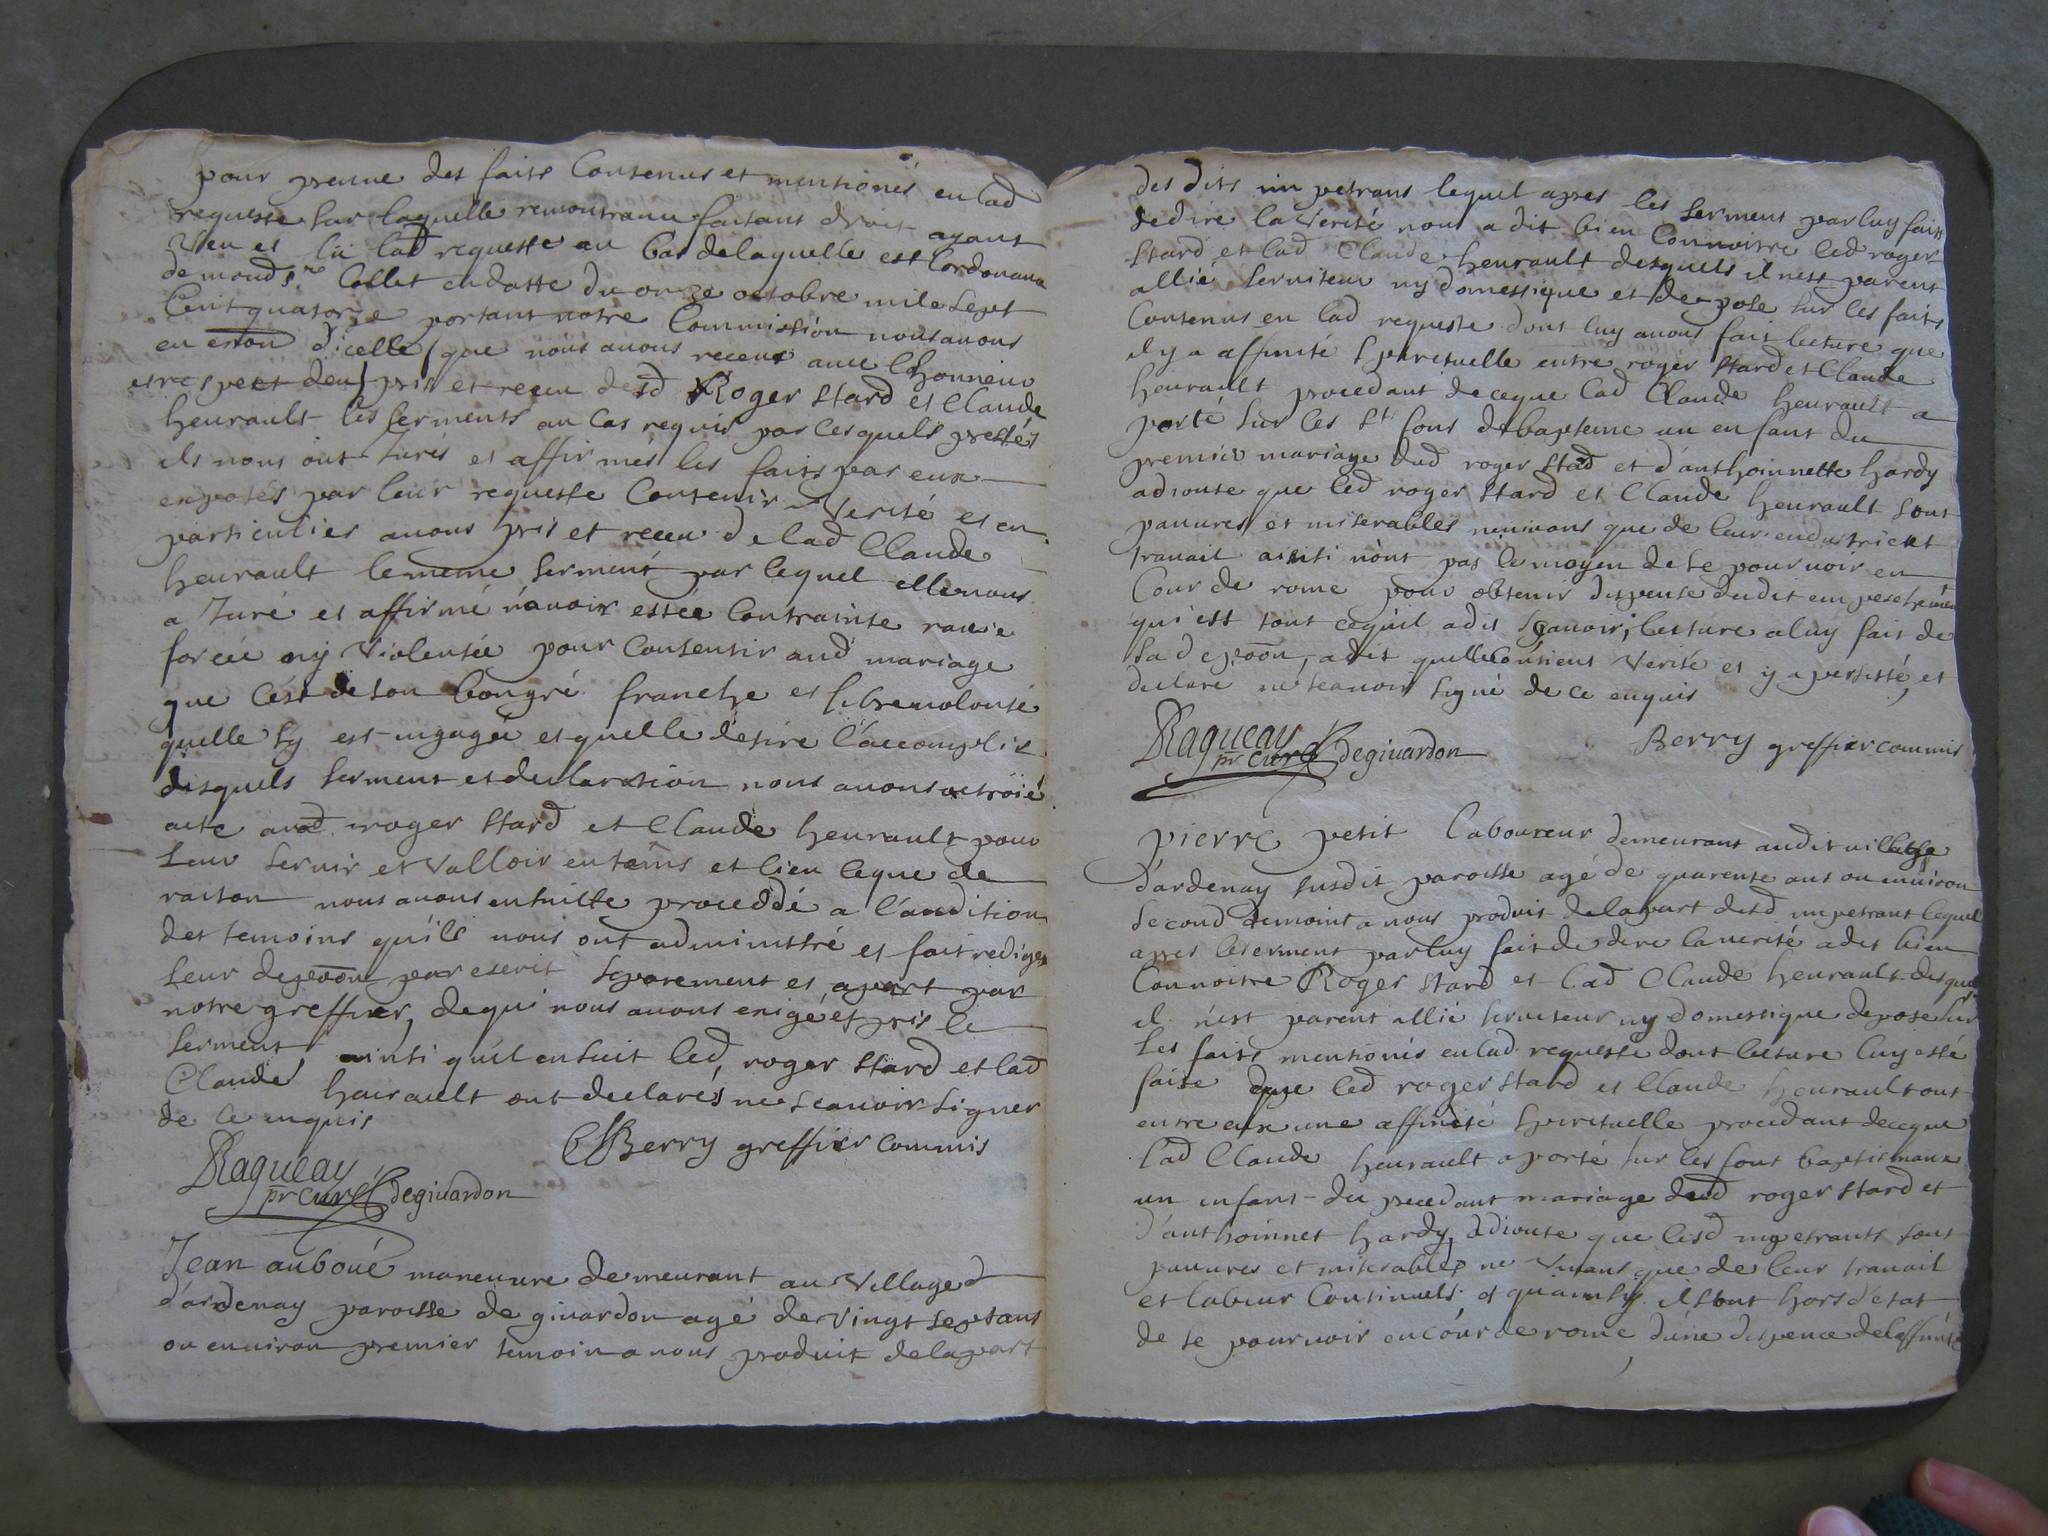 pour preuve des faits Contenus et mentionés en lad
requeste sur laquelle remontrance faisant droit ayant
Veu et lü lad requeste au bas delaquelle est lordonance
demond sr Collet endatte du onze octobre mile sept
Cent quatorze portant notre Commission nous avons
en d'icelle que nous avons receue avec lhonneur
et respect deu pris et receu desd Roger Stard et Claude
heurault les serments au cas requis par lesquels prestés
ils nous ont Jurés et affirmés les faits par eux
exposés par leur requeste Contenir Verité et en
particulier avons pris et receu de lad Claude
heurault lememe serment par lequel elle nous
a Juré et affirmé n'avoir estée Contrainte ravie
forcée ny Violentée pour Consentir aud mariage
que c'est de son bongré franche et libre volonté
quelle sy est engagée et quelle desire l'accomplir
desquels serment et declaration nous avons octroié
acte aud roger Stard et Claude heurault pour
leur servir et Valloir en tems et lieu ceque de
raison nous avons ensuitte proceddé a l'audition
des temoins qu'ils nous ont administré et fait rediger
leur depoõn par escrit separement et apart par
notre greffier, dequi nous avons exigé et pris le
serment, ainsi quil ensuit led, roger Stard et lad
Claude heurault ont declarés ne scavoir signer
de ce enquis
Berry greffier commis
Raqueau
pr curé degivardon
Jean auboué maneuvre demeurant au Village d
d'ardenay paroisse de givardon agé de Vingt sept ans
ou environ premier temoin a nous produit delapart
des dits impetrans lequel apres les serment par luy faits
dedire la Verité nous a dit bien Connoitre led roger
Stard et lad Claude heurault desquels il nest parent
allié serviteur ny domestique et depose sur les faits
Contenus en lad requeste dont luy avons fait lecture que
il y a affinité spirituelle entre roger Stard et Claude
heurault procedant de ceque lad Claude heurault a
porté sur les St fons de bapteme un enfant du
premier mariage dud roger Stad et d'anthoinnette hardy
adjoute que led roger Stard et Claude heurault sont
pauvres et miserables nevivans que de leur endustrie et
travail ainsi nont pas le moyen de se pourvoir en
Cour de rome pour obtenir dispense dudit empeschement
qui est tout cequil a dit scavoir, lecture a luy fait de
sa depoõn, a dit quelle Contient Verité et y a persisté, et
declaré ne scavoir signé de ce enquis
Raqueau
pr curé degivardon
Berry greffier commis
pierre petit laboureur demeurant audit village
d'ardenay susdit paroisse agé de quarente ans ou environ
second temoint a nous produit delapart desd impetrant lequel
apres leserment par luy fait de dire laverité a dit bien
Connoitre Roger Stard et lad Claude heurault desquels
il n'est parent allié serviteur ny domestique depose sur
les faits mentionés en lad requeste dont lecture luy a esté
faite que led roger Stard et Claude heurault ont
entre eux une affinité spirituelle procedant deceque
lad Claude heurault a porté sur les font baptismaux
un enfant du precedant mariage dud roger Stard et
d'anthoinnet hardy, adjoute que lesd impetrants sont
pauvres et miserables ne Vivans que de leur travail
et labeur Continuels et quainsy ilsont hors d'etat
de se pourvoir en cour de rome d'une dispence delaffinité